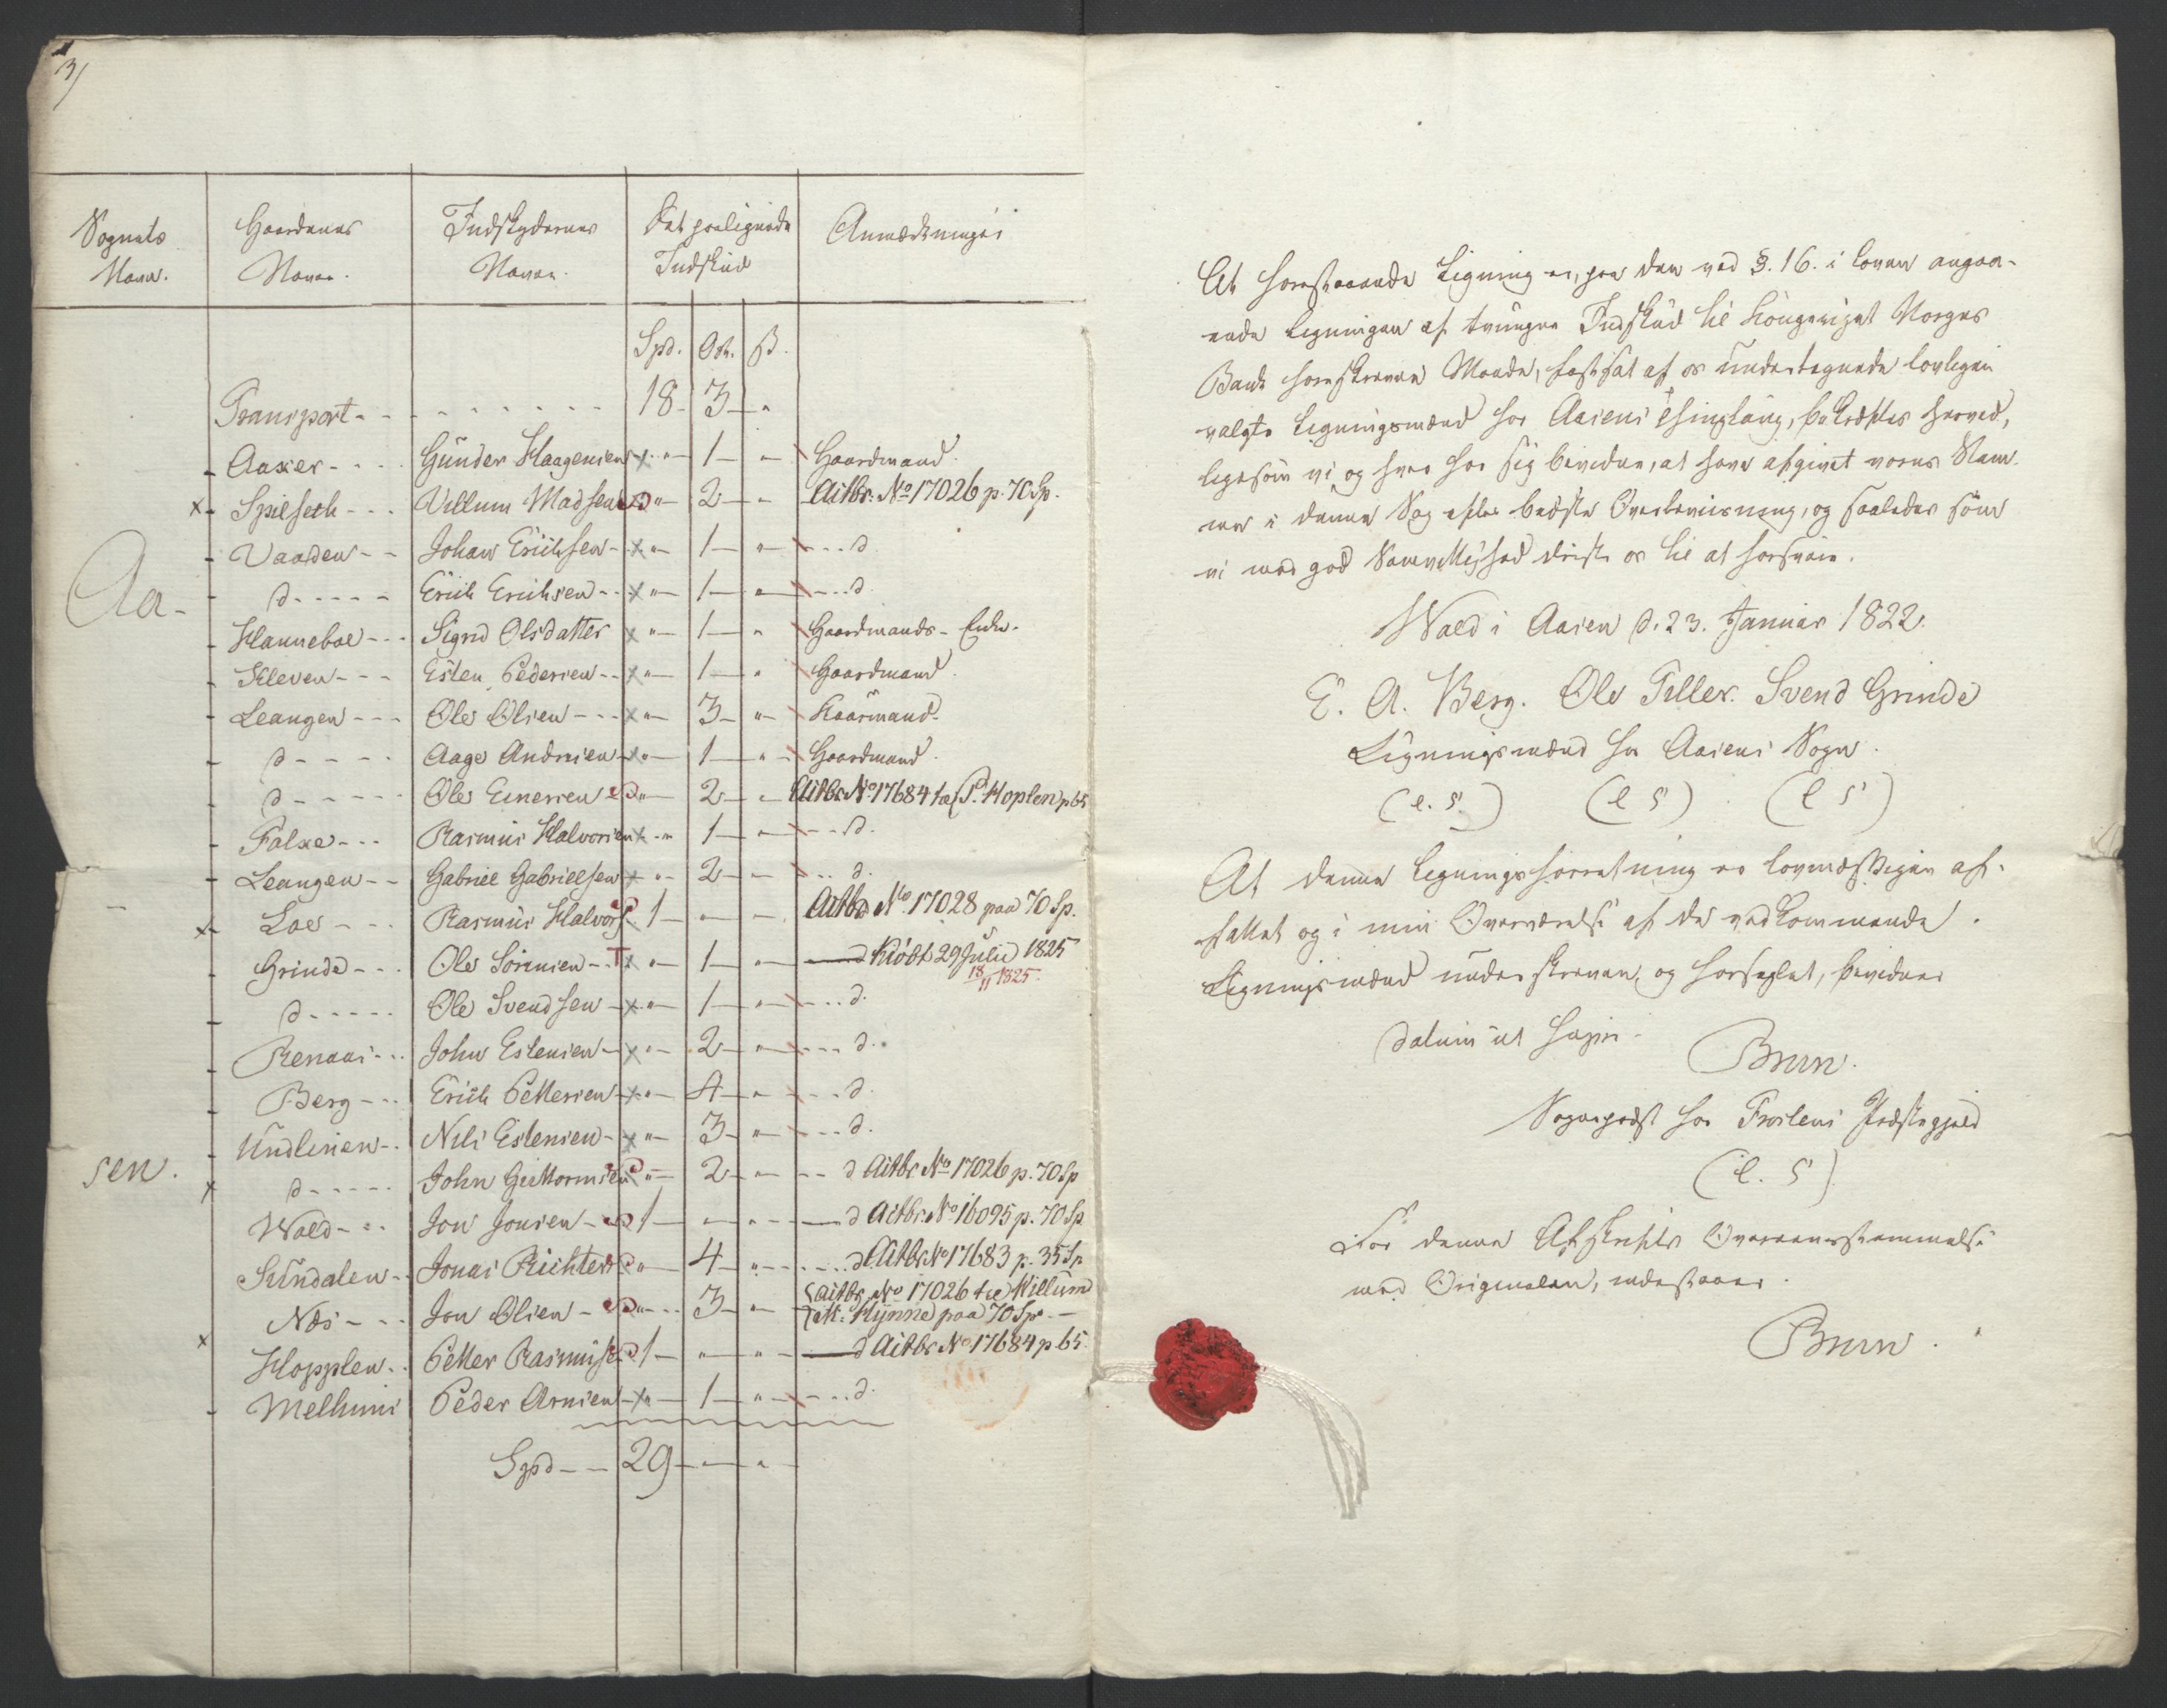 3/
Sognets Navn. | Gaardenes Navne. | Indskydernes Navne. | Det paalignede Indskud | Anmærkninger
Spd. | Ort. | ß.
Transport - - - 18 - 3 - "
Aaxer - - - Günder Haagensen x " - 1 - " Gaardmand.
x Spilseth - - - Villum Madsen " - 2 - " Actbr. No 17026 p. 70 Sp.
Vaaden - - Johan Erichsen - x " - 1 - " - - - d.
Aa-
d - - - - - Erich Erichsen - - x " - 1 - " - - - d.
Hanneboe - - - Sigrid Olsdatter x " - 1 - " Gaardmands-Enke.
Kleven - - - Esten Pedersen - - x " - 1 - " Gaardmand.
Leangen - - - Ole Olsen - - - x " - 3 - " - Kaarmand.
d - - - - Aage Andersen - x " - 1 - " - Gaardmand.
d - - - - - Ole Einersen " - 2 - " Actbr No 17684 til P. Hoplen p 65
Falxe - - - Rasmus Halvorsen x - " 1 - " - - - d.
Leangen - - Gabriel Gabrielsen x " - 2 - " - - - d.
x Loe - - - Rasmus Halvors 1 - " - " Actbr No. 17028 paa 70 Sp.
Grinde - - - Ole Sörensen - - T x " - 1 - " d Kiöbt 29 Julii 1825
18/11 1825.
d - - - - - Ole Svendsen - x " - 1 - " - - - d.
Renaai - - - John Estensen - x " - 2 - " - - - d.
Berg - - - Erich Pettersen - x " - 4 - " - - - d.
Undlien - - Nils Estensen - x " - 3 - " - - - d.
sen.
x d - - - - - John Guttormsen " - 2 - " - - d Actbr No 17026 p. 70 Sp
Wold - - - Jon Jonsen - 1 - " - " - d Actbr. No 16095 p. 70 Sp
Sundalen - - Jonas Richter " - 4 - " - - - d Actbr No 17683 p. 35 Sp
Næs - - - Jon Olsen - " - - 3 - " - Actbr No 17026 til Willum
M. Hynne paa 70 Sp. -
x Hopplen - - Petter Rasmusen 1 - " - " - d Actbr No 17684 p 65.
Melhuus Peder Arnsen - x " - 1 - " - - - d.
Spd - - 29 - " - "
At forestaaende Ligning er, paa den ved §. 16. i Loven angaa-
ende Ligningen af tvungne Indskud til Kongeriget Norges
Bank foreskrevne Maade, fastsat af os undertegnede lovligen
valgte Ligningsmænd for Aasens Thinglaug, bekræftes herved,
ligesom vi og hver for sig bevidne, at have afgivet vores Stem-
mer i denne Sag efter bedste Overbeviisning, og saaledes som
vi med god Samvittighed driste os til at forsvare.
Wold i Aasen d. 23. Januar 1822.
E. A. Berg. Ole Tiller. Svend Grinde
Ligningsmænd for Aasens Sogn.
(L. S.) (L S) (L S)
At denne Ligningsforretning er lovmæssigen af-
fattet og i min Overværelse af de vedkommende
Ligningsmænd underskreven, og forseglet, bevidner
datum ut supra.
Brun.
Sognepræst for Frostens Præstegjeld
(L. S)
For denne Afskrifts Overeensstemmelse
med Originalen, indestaaer.
Brun.